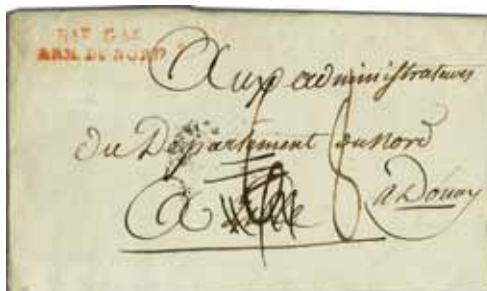 BAU GAL
ARM. DU NORD
Aux administrateurs
du Département du Nord
A
a Douay